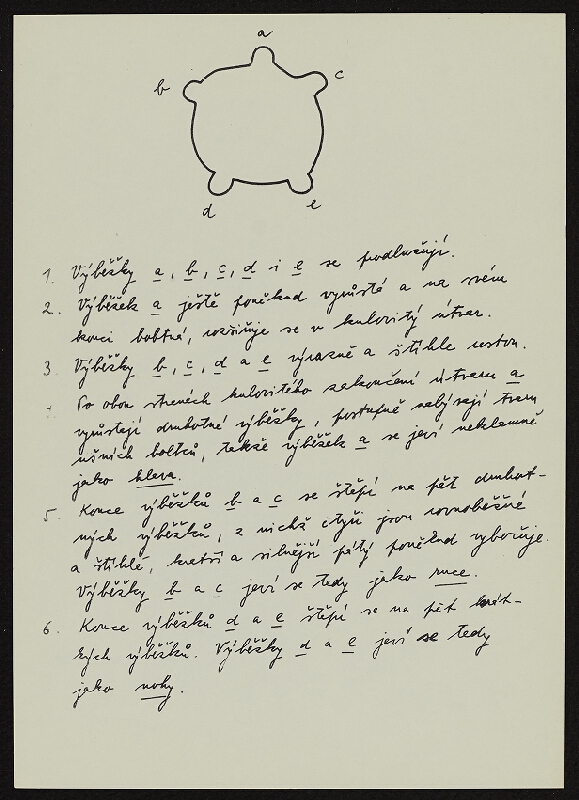 a
b
c
d
e
1. Výběžky a, b, c, d i e se prodlužují.
2. Výběžek a ještě poněkud vyrůstá a na svém
konci bobtná, rozšiřuje se v kulovitý útvar.
3. Výběžky b, c, d a e výrazně a štíhle rostou.
4. Po obou stranách kulovitého zakončení útvaru a
vyrůstají druhotné výběžky, postupně nabývají tvaru
ušních boltců, takže výběžek a se jeví neklamně
jako hlava.
5. Konce výběžků b a c se štěpí na pět druhot-
ných výběžků, z nichž čtyři jsou rovnoběžné
a štíhlé, kratší a silnější pátý poněkud vybočuje.
Výběžky b a c jeví se tedy jako ruce.
6. Konce výběžků d a e štěpí se na pět krát-
kých výběžků. Výběžky d a e jeví se tedy
jako nohy.